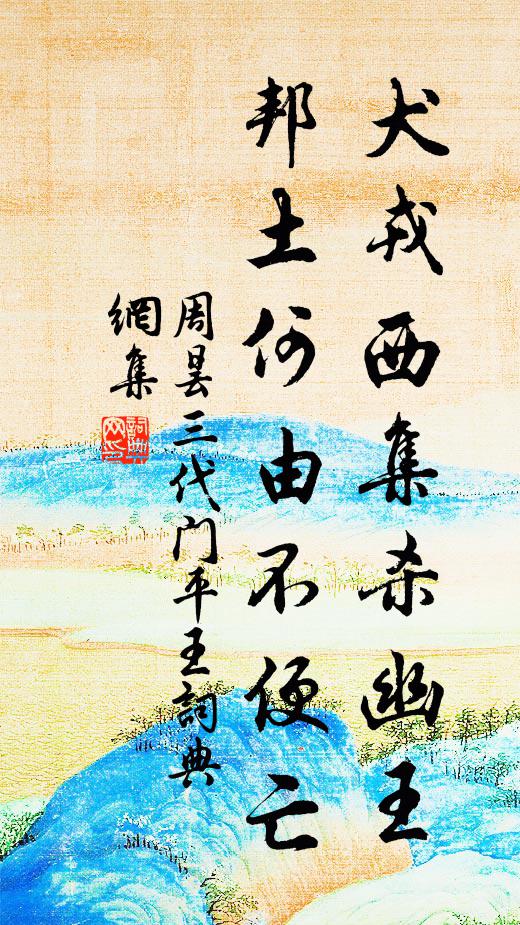 犬戎西集杀幽王
邦土何由不便亡
周昙三代门平王詞典
網集